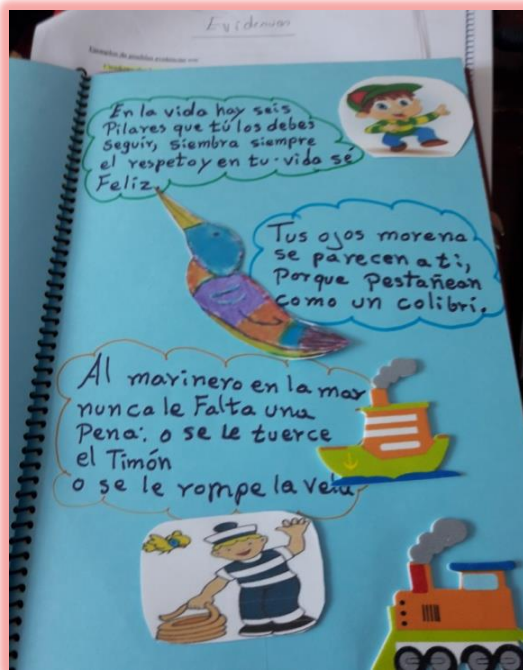 Evidencias
Ejemplos de posibles evidencias
En la vida hay seis
Pilares que tú los debes
seguir, siembra siempre
el respeto y en tu vida sé
Feliz.
Tus ojos morena
se parecen a ti,
Porque Pestañean
como un colibrí.
Al marinero en la mar
nunca le Falta una
Pena: o se le tuerce
el Timón
o se le rompe la vela